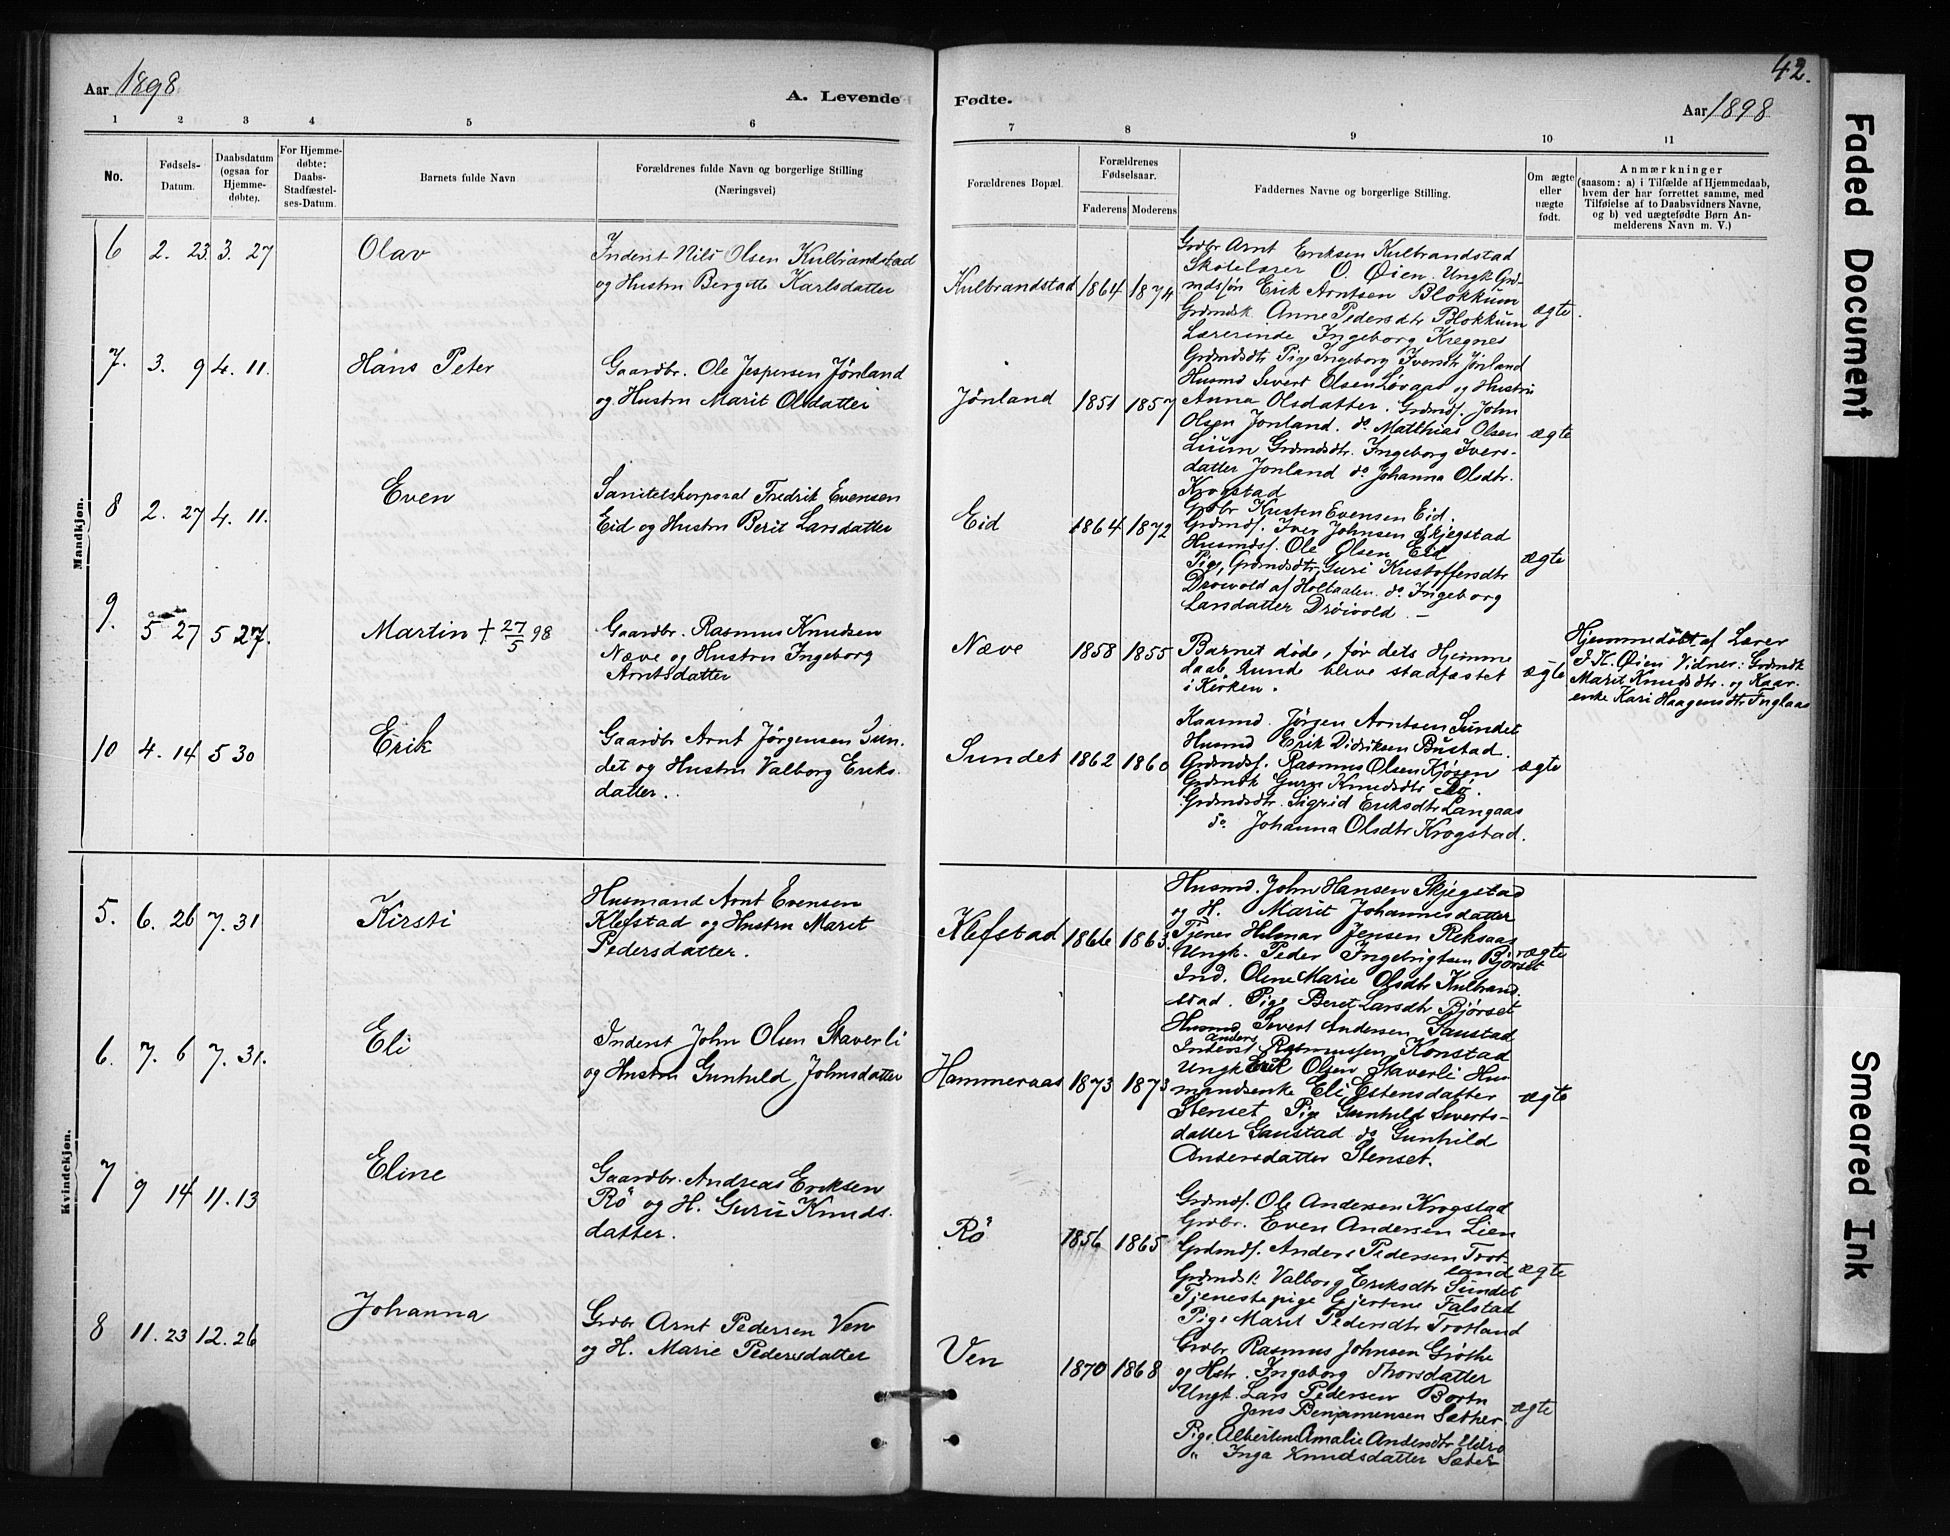 42.
Aar 1898
A. Levende Fødte.
Aar 1898
1 2 3 4 5 6 7 8 9 10 11
No.
Fødsels-
Datum.
Daabsdatum
(ogsaa for
Hjemme-
døbte).
For Hjemme-
døbte:
Daabs-
Stadfæstel-
ses-Datum.
Barnets fulde Navn
Forældrenes fulde Navn og borgerlige Stilling
(Næringsvei)
Forældrenes Bopæl.
Forældrenes
Fødselsaar.
Faderens Moderens
Faddernes Navne og borgerlige Stilling.
Om ægte
eller
uægte
født.
Anmærkninger
(saasom: a) i Tilfælde af Hjemmedaab,
hvem der har forrettet samme, med
Tilføielse af to Daabsvidners Navne,
og b) ved uægtefødte Børn An-
melderens Navn m. V.)
Mandkjøn.
6 2. 23 3. 27 Olav
Inderst Nils Olsen Kulbrandstad
og Hustru Bergitte Karlsdatter
Kulbrandstad 1864 1874
Grdbr Arnt Eriksen Kulbrandstad
Skolelærer O. Øien. Ungk. Grd-
mdsøn Erik Arntsen Blokkum
Grdmdsk Anne Pedersdtr Blokkum
Lærerinde Ingeborg Kregnes
Grdmdsdtr Pige Ingeborg Iversdtr Jönland
ægte
7. 3. 9 4. 11. Hans Peter
Gaardbr. Ole Jespersen Jönland
og Hustru Marit Olsdatter
Jönland 1851 1857
Husmd Sivert Olsen og Hustru
Anna Olsdatter. Grdmds. John
Olsen Jonland. do Matthias Olsen
Lium Grdmdsdtr. Ingeborg Ivers-
datter Jonland do Johanna Olsdtr.
Krogstad
ægte
8 2. 27 4. 11. Even
Sanitetskorporal Fredrik Evensen
Eid og Hustru Berit Larsdatter
Eid 1864 1872
Grdbr Kristen Evensen Eid.
Grdmds. Iver Johnsen Skjegstad
Husmds. Ole Olsen Eid
Pige, Grdmdsdtr, Guri Kristoffersdtr
Dröivold af Holtaalen. do Ingeborg
Larsdatter Dröivold. –
ægte
9. 5 27 5 27. Martin + 27/5 98
Gaardbr. Rasmus Knudsen
Næve og Hustru Ingeborg
Arntsdatter
Næve 1858 1855
Barnet døde, før dets Hjemme
daab kunde blive stadfæstet
i Kirken.
ægte
Hjemmedøbt af Lærer
I. K. Øien Vidner: Grdmdk
Marit Knudsdtr. og Kaar-
enke Kari Haagensdtr Englaas
10 4. 14 5 30 Erik
Gaardbr Arnt Jørgensen Sun-
det og Hustru Valborg Eriks-
datter.
Sundet 1862 1860
Kaarmd. Jørgen Arntsen Sundet
Husmd Erik Didriksen Bustad.
Grdmds. Rasmus Olsen Kjösen
Grdmdk Guru Knudsdtr Rö.
Grdmdsdtr. Sigrid Eriksdtr Langaas
do Johanna Olsdtr Krogstad.
ægte
Kvindekjøn.
5. 6. 26 7. 31 Kirsti
Husmand Arnt Evensen
Klefstad og Hustru Marit
Pedersdatter.
Klefstad 1866 1863.
Husmd. John Hansen Skjegstad
og H. Marit Johannesdatter
Tjener Hilmar Jensen Reksaas
Ungk. Peder Ingebrigtsen Bjørset
Ind. Oline Marie Olsdtr Kulbrand-
stad. Pige Beret Larsdtr Bjørset
ægte
6. 7. 6 7. 31. Eli
Inderst John Olsen Staverli
og Hustru Gunhild Johnsdatter
Hammeraas 1873 1873
Husmd Sivert Andersen Gaustad
Inderst Anders Rasmussen Konstad
Ungk Erik Olsen Staverli Hus-
mandsenke Eli Estensdatter
Stenset Pige Gunhild Siverts-
datter Gaustad do Gunhild
Andersdatter Stenset.
ægte
7 9 14 11. 13 Eline
Gaardbr. Andreas Eriksen
Rö og H. Guru Knuds-
datter.
Rö 1856 1865
Grdmds. Ole Andersen Krogstad
Grdbr. Even Andersen Lien
Grdmds. Anders Pedersen Trot-
land
Grdmdsk Valborg Eriksdtr Sundet
Tjenestepige Gjertine Falstad
Pige Marit Pedersdtr Trotland
ægte
8 11. 23 12. 26 Johanna
Grdbr Arnt Pedersen Ven
og H. Marie Pedersdatter
Ven 1870 1868
Grdbr Rasmus Johnsen Gröthe
og Hstr. Ingeborg Thorsdatter
Ungk. Lars Pedersen Bortn
Jens Benjaminsen Sæther
Pige Albertine Amalie Andersdtr Uldro
" Inga Knudsdatter Sæter
ægte
Faded Document
Smeared Ink